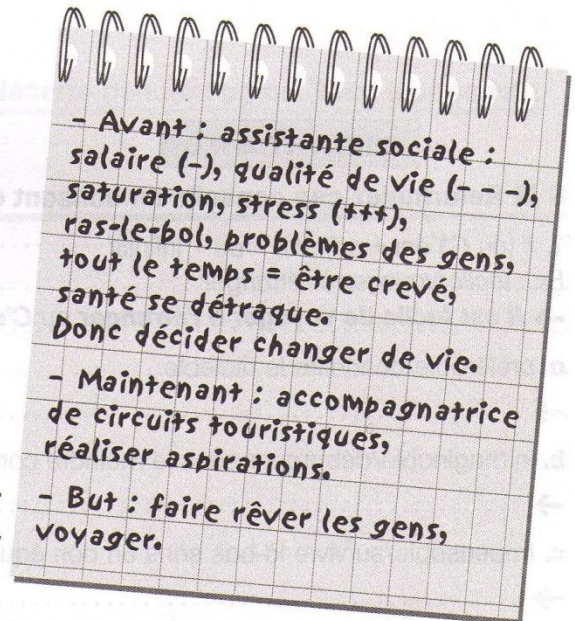 - Avant : assistante sociale :
salaire (-), qualité de vie (- - -),
saturation, stress (+++),
ras-le-bol, problèmes des gens,
tout le temps = être crevé,
santé se détraque.
Donc décider changer de vie.
- Maintenant : accompagnatrice
de circuits touristiques,
réaliser aspirations.
- But : faire rêver les gens,
voyager.